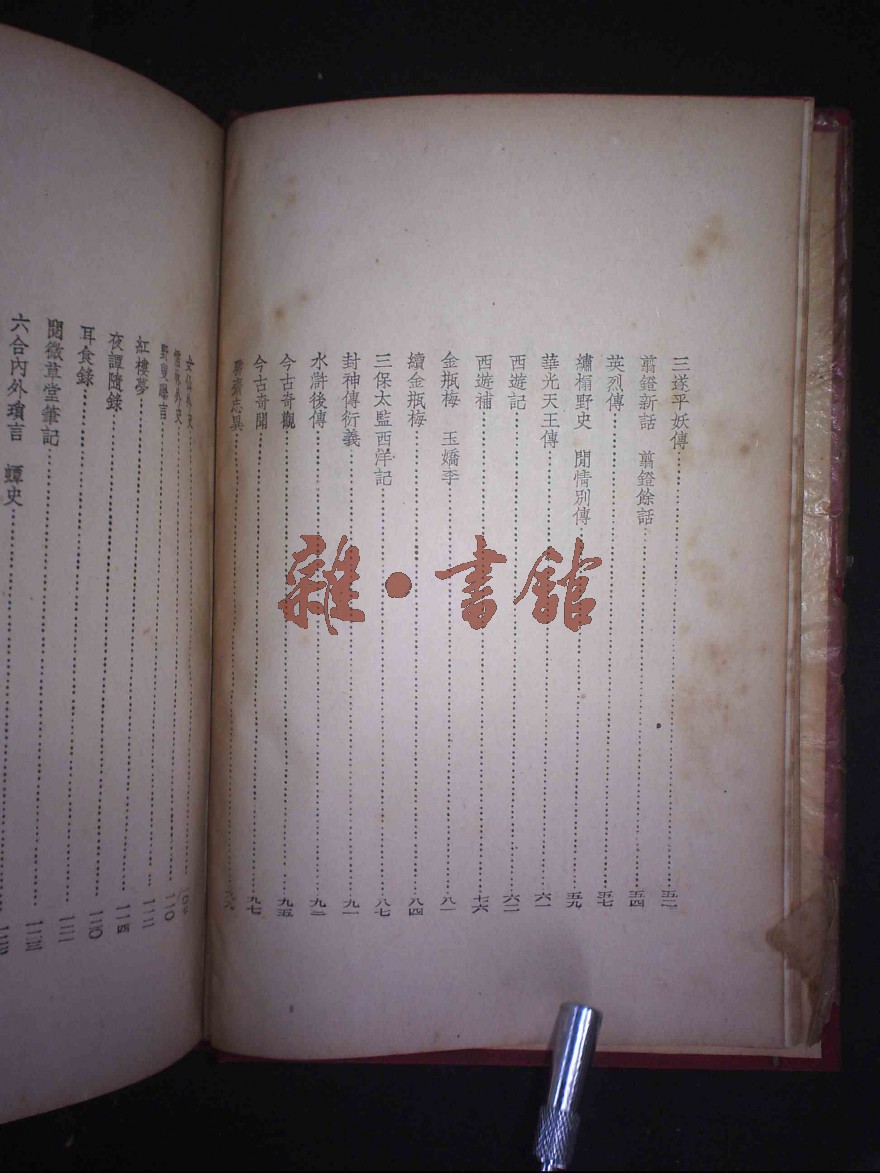 三遂平妖傳 五二
翦鐙新話 翦鐙餘話 五四
英烈傳 五七
繡榻野史 閒情別傳 五九
華光天王傳 六一
西遊記 六二
西遊補 七六
金瓶梅 玉嬌李 八一
續金瓶梅 八四
三保太監西洋記 八七
封神傳衍義 九一
水滸後傳 九二
今古奇觀 九五
今古奇聞 九七
聊齋志異
女仙外史
儒林外史
野叟曝言 一一〇
紅樓夢
夜譚隨錄
耳食錄
閱微草堂筆記
六合內外瑣言 蟫史
雜·書館